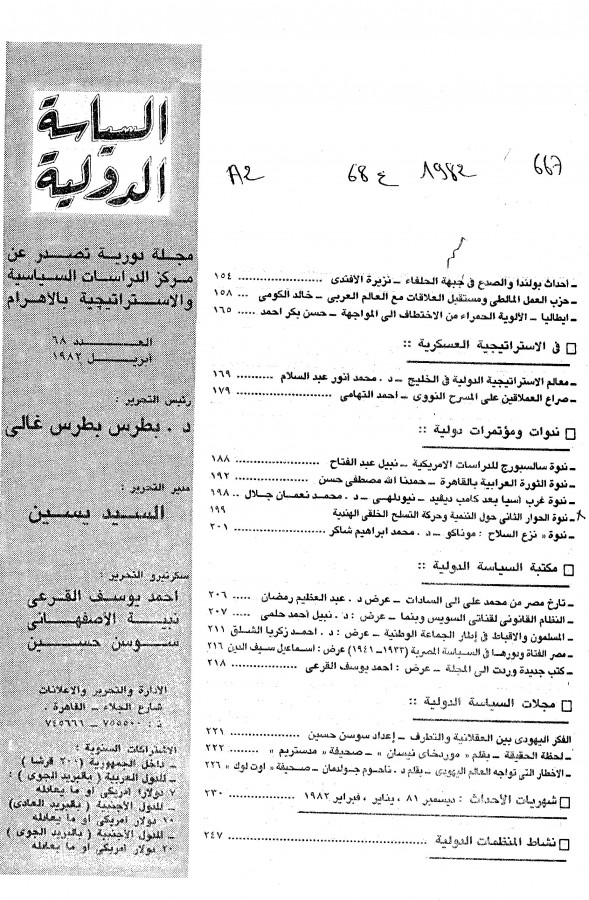 السياسة
الدولية
مجلة دورية تصدر عن
مركز الدراسات السياسية
والاستراتيجية بالاهرام
العدد ٦٨
أبريل ١٩٨٢
رئيس التحرير :
د . بطرس بطرس غالى
مدير التحرير :
السيد يسين
سكرتيرو التحرير :
احمد يوسف القرعى
نبية الأصفهانى
سوسن حسين
الادارة والتحرير والاعلانات
شارع الجلاء - القاهرة .
ت : ٧٥٥٥٠٠ - ٧٤٥٦٦١
الاشتراكات السنوية :
ـ داخل الجمهورية (٢٠٠ قرشا )
ـ للدول العربية ( بالبريد الجوى ) :
٧ دولار امريكى او ما يعادله
ـ للدول الأجنبية ( بالبريد العادى)
١٠ دولار امريكى او ما يعادله
ـ للدول الأجنبية ( بالبريد الجوى )
٢٠ دولار امريكى او ما يعادله
A2 68 ع 1982 667
ـ أحداث بولندا والصدع فى جبهة الحلفاء ـ نزيرة الأفندى ........ ١٥٤
ـ حزب العمل المالطى ومستقبل العلاقات مع العالم العربى ـ خالد الكومى .... ١٥٨
ـ ايطاليا ـ الألوية الحمراء من الاختطاف الى المواجهة ـ حسن بكر احمد .... ١٦٥
□ فى الاستراتيجية العسكرية ::
ـ معالم الاستراتيجية الدولية فى الخليج ـ د . محمد أنور عبد السلام .......... ١٦٩
ـ صراع العملاقين على المسرح النووى ـ أحمد التهامى .......... ١٧٩
□ ندوات ومؤتمرات دولية ::
ـ ندوة سالسبورج للدراسات الامريكية ـ نبيل عبد الفتاح .......... ١٨٨
ـ ندوة الثورة العرابية بالقاهرة ـ حمدنا الله مصطفى حسن .......... ١٩٢
ـ ندوة غرب أسيا بعد كامب ديفيد ـ نيودلهى ـ د . محمد نعمان جلال .. ١٩٨
ـ ندوة الحوار الثانى حول التنمية وحركة التسلح الخلقى الهندية ١٩٩
ـ ندوة « نزع السلاح : موناكو ـ د . محمد ابراهيم شاكر .......... ٢٠١
□ مكتبة السياسة الدولية ::
ـ تارخ مصر من محمد على الى السادات ـ عرض د . عبد العظيم رمضان .... ٢٠٦
ـ النظام القانونى لقناتى السويس وبنما ـ عرض : د . نبيل أحمد حلمى .... ٢٠٧
ـ المسلمون والاقباط فى إطار الجماعة الوطنية ـ عرض : د . احمد زكريا الشلق ٢١١
ـ مصر الفتاة ودورها فى السياسة المصرية (١٩٣٣ - ١٩٤١) عرض : اسماعيل سيف الدين ٢١٦
ـ كتب جديدة وردت الى المجلة ـ عرض : احمد يوسف القرعى .......... ٢١٨
□ مجلات السياسة الدولية ::
الفكر اليهودى بين العقلانية والتطرف ـ إعداد سوسن حسين .......... ٢٢١
ـ لحظة الحقيقة ـ بقلم « موردخاى نيسان » ـ صحيفة « مدستريم » .... ٢٢٢
ـ الاخطار التى تواجه العالم اليهودى ـ بقلم د . ناحوم جولدمان ـ صحيفة « اوت لوك » ٢٢٦
□ شهريات الأحداث : ديسمبر ٨١ ، يناير ، فبراير ١٩٨٢ .......... ٢٣٠
□ نشاط المنظمات الدولية .......... ٢٤٧